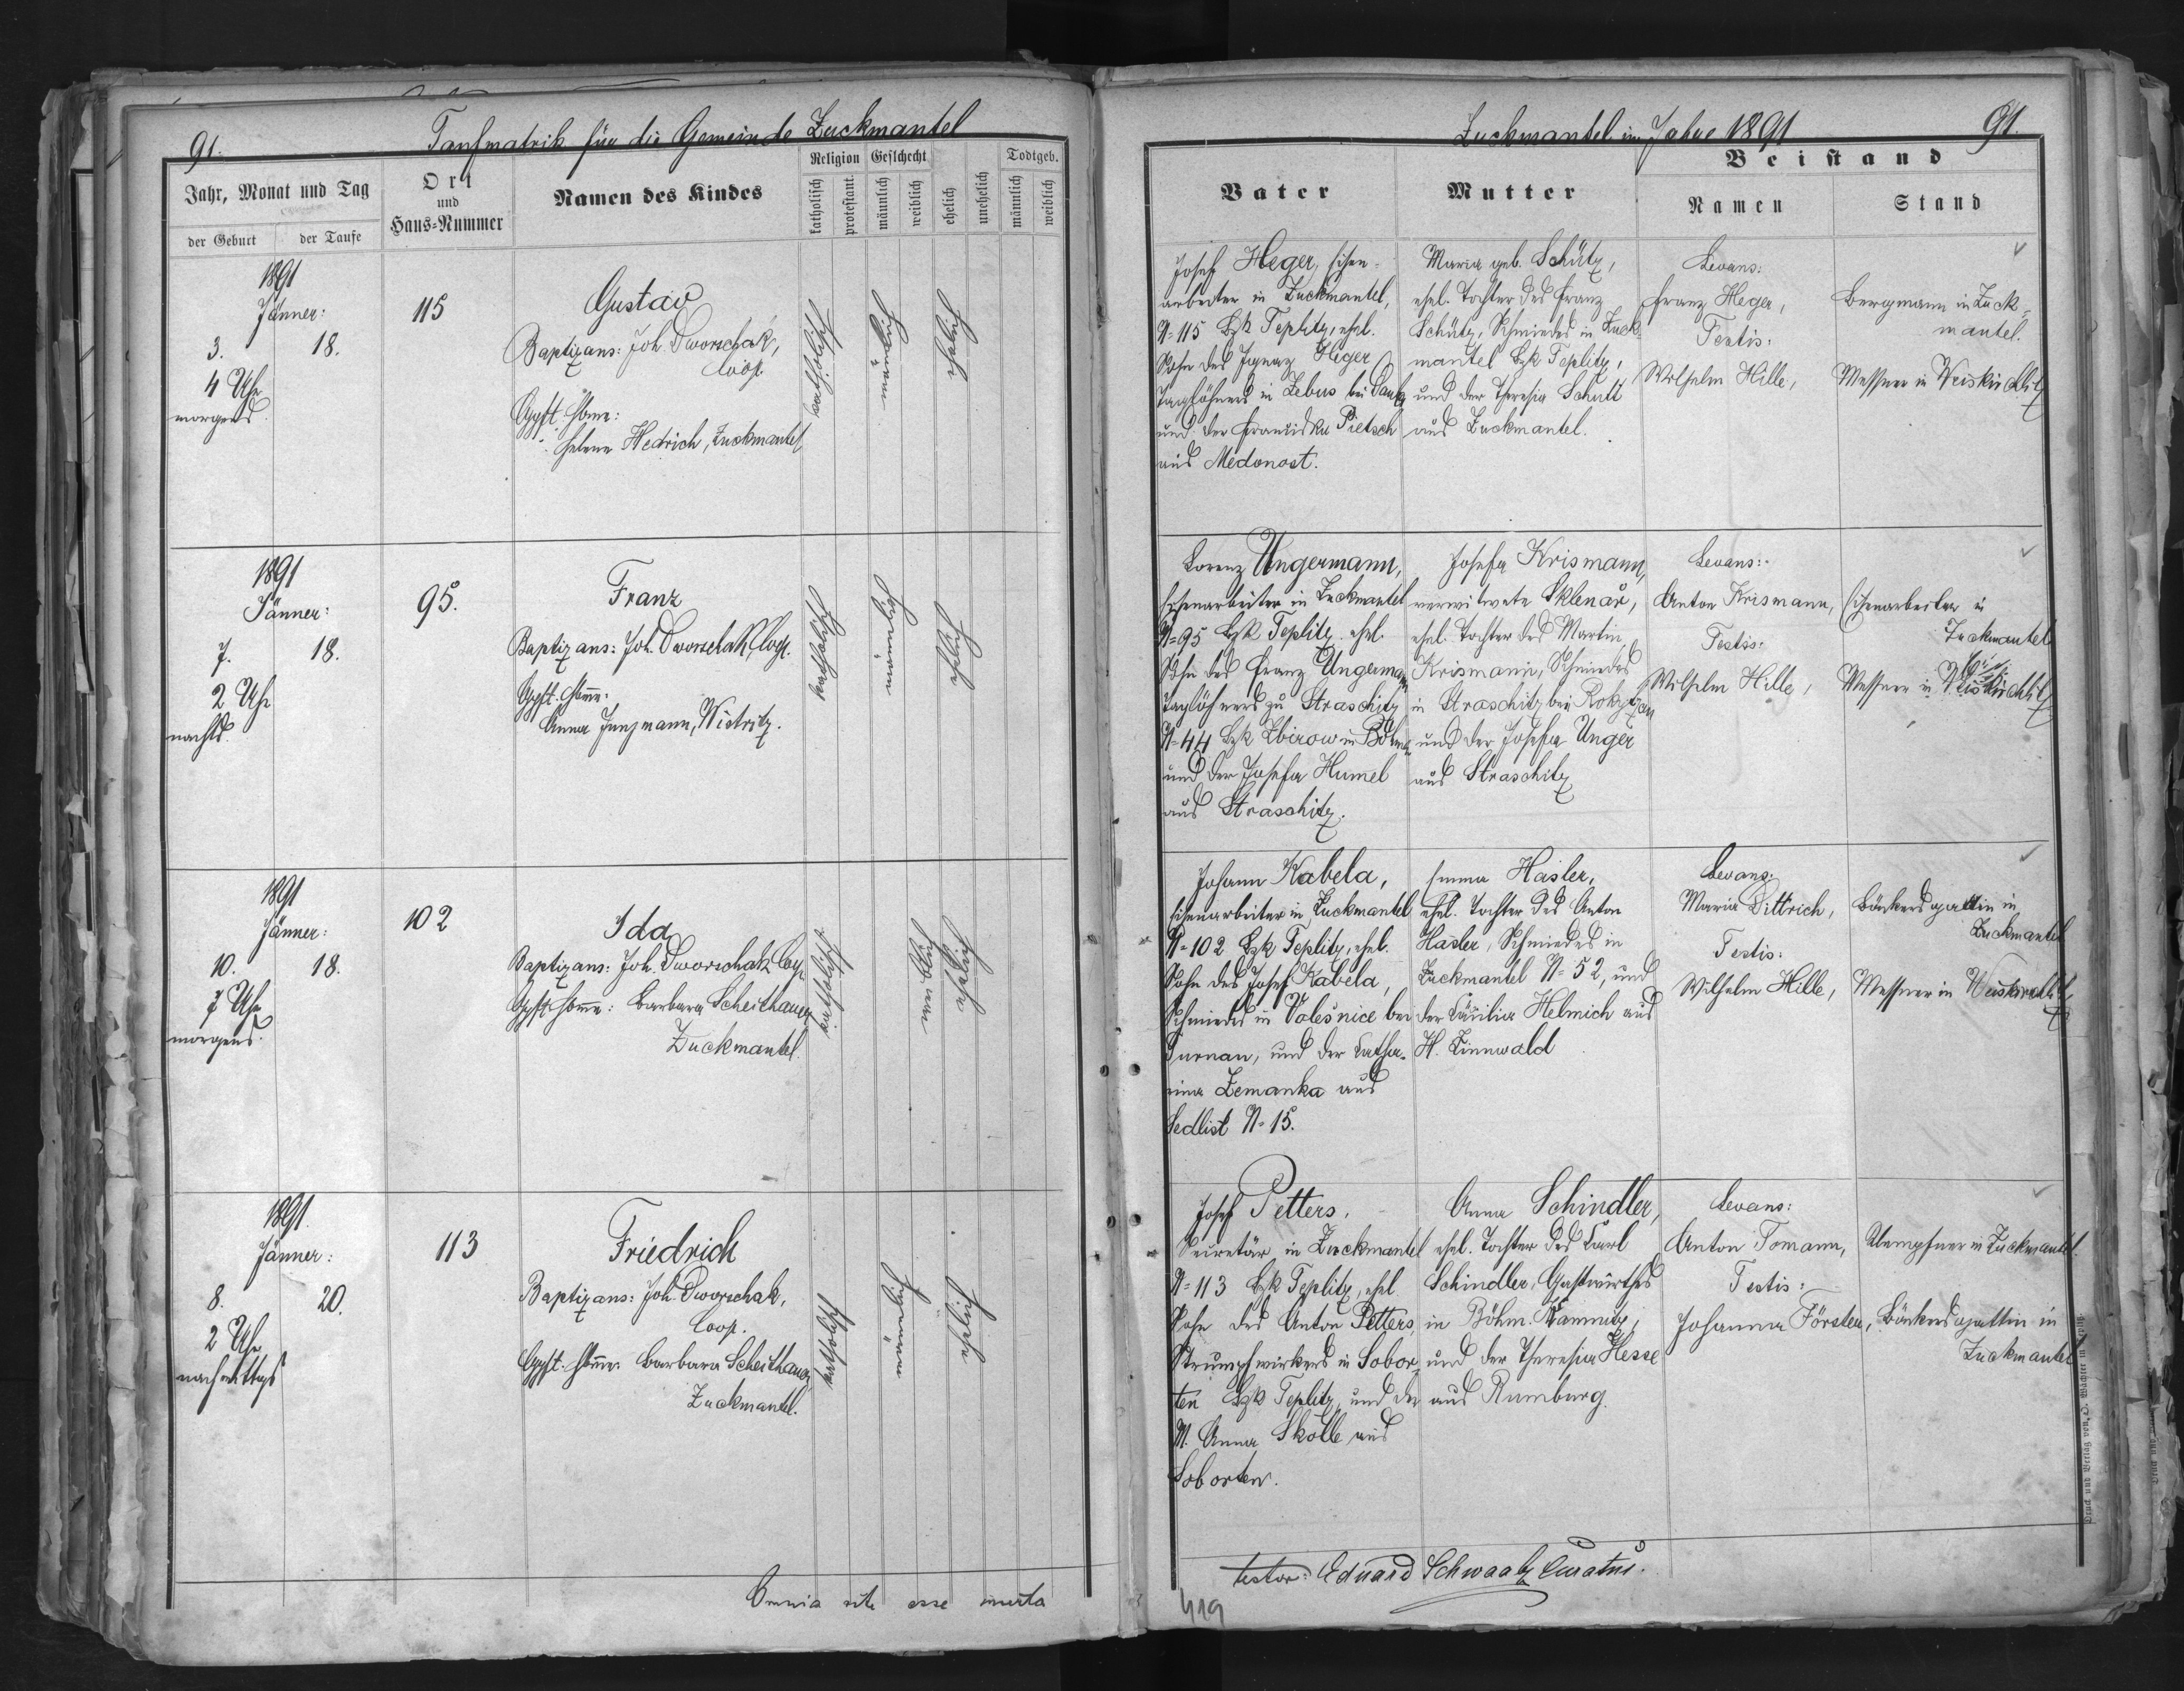 91.
Taufmatrik für die Gemeinde Zuckmantel
Jahr, Monat und Tag
der Geburt
der Taufe
Ort
und
Haus-Nummer
Namen des Kindes
Religion
katholisch
protestant.
Geschlecht
männlich
weiblich
ehelich
unehelich
Todtgeb.
männlich
weiblich
1891
Jänner:
3.
18.
4 Uhr
morgens.
115
Gustav
Baptizans: Joh. Dworschak,
Coop.
Gepft. Hebme:
Helene Hedrich, Zuckmantel
katholisch
männlich
ehelich
1891
Jänner:
7.
18.
2 Uhr
nachts.
95.
Franz
Baptizans: Joh. Dworschak, Coop.
Gepft. Hebme:
Anna Jungmann, Wistritz.
katholisch
männlich
ehelich
1891
Jänner:
10.
18.
7 Uhr
morgens.
102
Ida
Baptizans: Joh. Dworschak Coop.
Gepft. Hebme: Barbara Scheithauer
Zuckmantel.
katholisch
weiblich
ehelich
1891.
Jänner:
8.
20.
2 Uhr
nachmittags
113
Friedrich
Baptizans: Joh. Dworschak,
Coop.
Gepft. Hebme: Barbara Scheithauer,
Zuckmantel.
katholisch
männlich
ehelich
Omnia rite esse inserta
Zuckmantel im Jahre 1891
91.
Vater
Mutter
Beistand
Namen
Stand
Josef Heger, Eisen-
arbeiter in Zuckmantel,
N=115 Bzk Teplitz, ehel.
Sohn des Ignaz Heger
Taglöhners in Zebus bei Dauba
und der Franziska Pietsch
aus Medonost.
Maria geb. Schütz,
ehel. Tochter des Franz
Schütz, Schmiedes in Zuck-
mantel Bzk Teplitz,
und der Theresia Schutt
aus Zuckmantel.
Levans:
Franz Heger,
Testis:
Wilhelm Hille,
Bergmann in Zuck-
mantel.
Messner in Weiskirchlitz
Lorenz Ungermann,
Eisenarbeiter in Zuckmantel
N=95 Bzk Teplitz ehel.
Sohn des Franz Ungermann
Taglöhners zu Straschitz
N=44 Bzk Zbirow in Böhmen
und der Josefa Humel
aus Straschitz.
Josefa Krismann,
verwitwete Sklenař,
ehel. Tochter des Martin
Krismann, Schmiedes
in Straschitz bei Rokytzan
und der Josefa Unger
aus Straschitz
Levans:
Anton Krismann,
Testis:
Wilhelm Hille,
Eisenarbeiter in
Zuckmantel
Messner in Weiskirchlitz
Johann Kabela,
Eisenarbeiter in Zuckmantel
N=102 Bzk Teplitz, ehel.
Sohn des Josef Kabela,
Schmiedes in Volešnice bei
Turnau, und der Katha-
rina Zemanka aus
Sedlist N=15.
Emma Hasler,
ehel. Tochter des Anton
Hasler, Schmiedes in
Zuckmantel N=52, und
der Cäcilia Helmich aus
H. Zinnwald
Levans:
Maria Dittrich,
Testis:
Wilhelm Hille,
Bäckersgattin in
Zuckmantel
Messner in Weiskirchlitz
Josef Petters,
Secretär in Zuckmantel
N=113 Bzk Teplitz, ehel.
Sohn des Anton Petters,
Strumpfwirkers in Sobor-
ten Bzk Teplitz, und der
M. Anna Skolle aus
Soborten.
Anna Schindler,
ehel. Tochter des Carl
Schindler, Gastwirthes
in Böhm. Kamnitz,
und der Theresia Hesse
aus Rumburg.
Levans:
Anton Tomann,
Testis:
Johanna Förster,
Klempfner in Zuckmantel
Bäckersgattin in
Zuckmantel
testor: Eduard Schwaab Curatus.
419